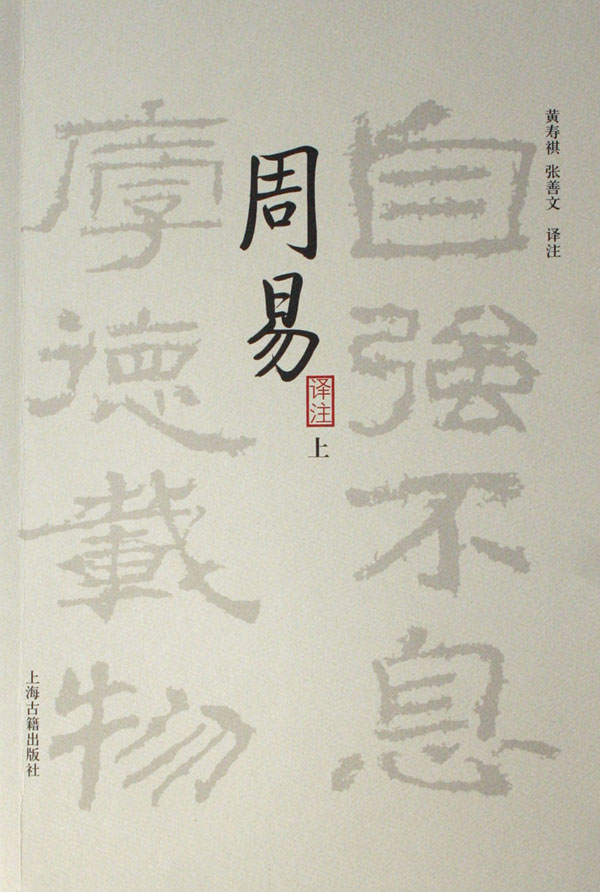 黄寿祺 张善文 译注
自强不息
周易
译注
上
厚德载物
上海古籍出版社